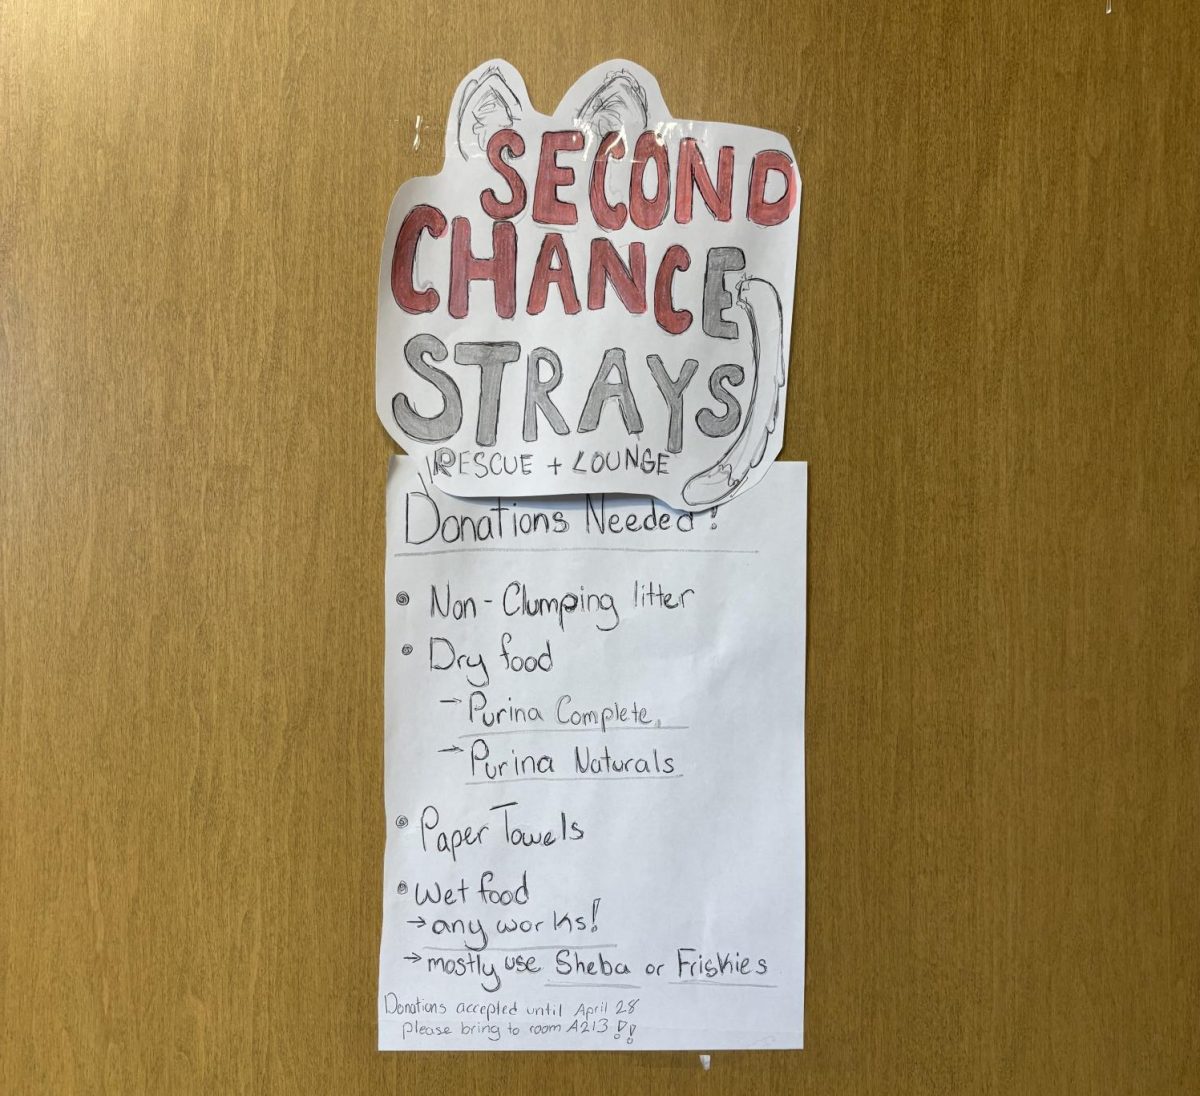 SECOND
CHANCE
STRAYS
RESCUE + LOUNGE
Donations Needed!
Non-Clumping litter
Dry food
→ Purina Complete
→ Purina Naturals
Paper Towels
Wet food
→ any works!
→ mostly use Sheba or Friskies
Donations accepted until April 28
please bring to room A213 !!